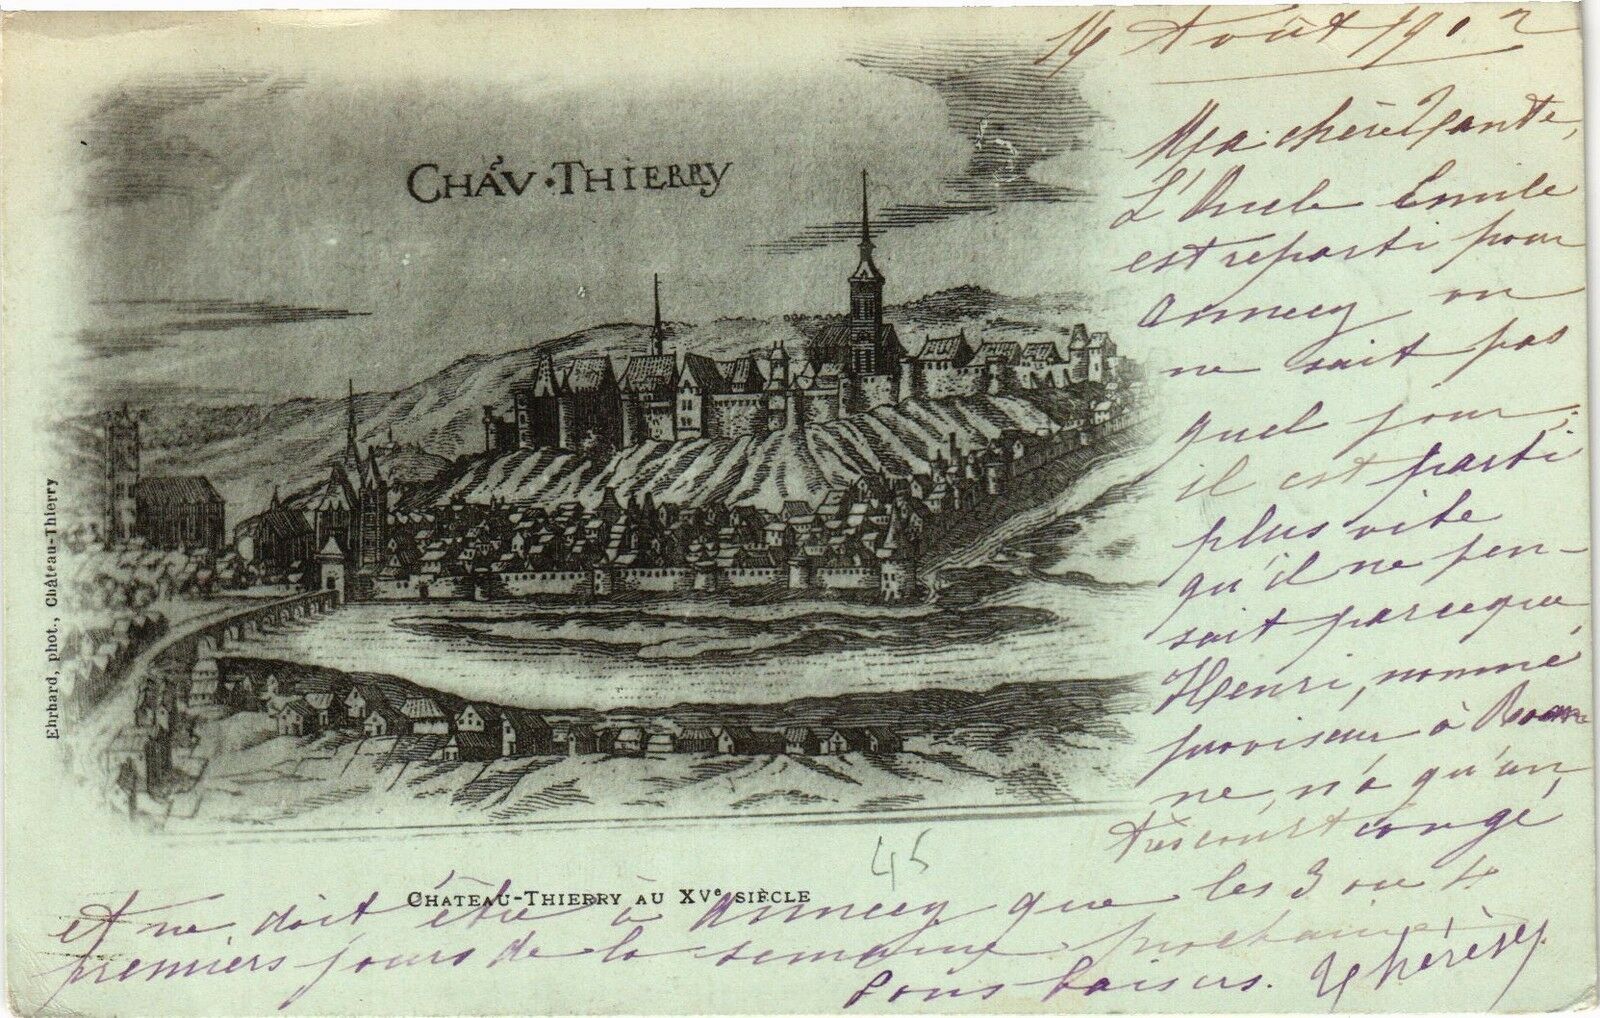 16 Août 1902
Ma chère Tante,
L'Oncle Emile
est reparti pour
Annecy on
ne sait pas
quel jour,
il est parti
plus vite
qu'il ne pen-
sait parceque
Henri, nommé
proviseur à Roan-
ne, n'a qu'un
très court congé
et ne doit être à Annecy que les 3 ou 4
premiers jours de la semaine prochaine
Bons baisers. Thérèse
CHAU·THIERRY
Ehrhard, phot., Château-Thierry
45
CHATEAU-THIERRY AU XVe SIÈCLE